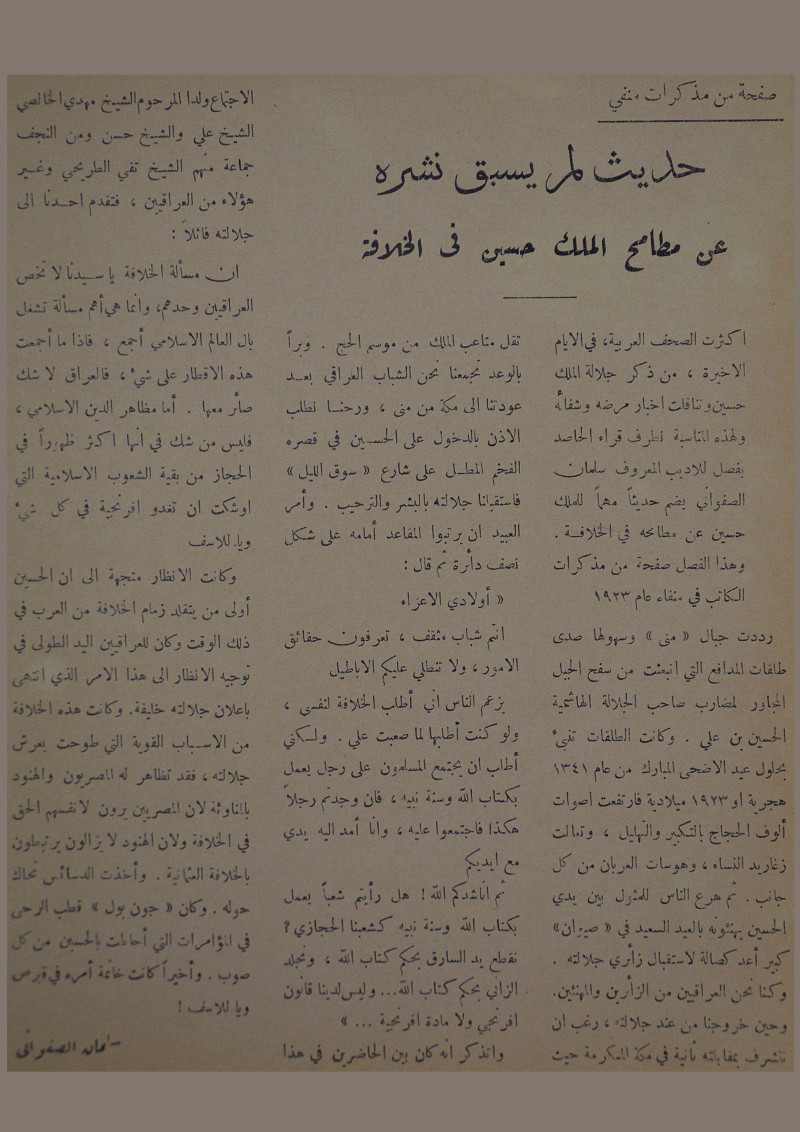 صفحة من مذكرات منفي
حديث لم يسبق نشره
عن مطامح الملك حسين في الخلافة
اكثرت الصحف العربية، في الايام
الاخيرة ، من ذكر جلالة الملك
حسين وتناقلت اخبار مرضه وشفائه
ولهذه المناسبة نطرف قراء الحاصد
بفصل للاديب المعروف سلمان
الصفواني يضم حديثاً مهماً للملك
حسين عن مطامحه في الخلافة .
وهذا الفصل صفحة من مذكرات
الكاتب في منفاه عام ١٩٢٣
رددت جبال « منى » وسهولها صدى
طلقات المدافع التي انبعثت من سفح الجبل
المجاور لمضارب صاحب الجلالة الهاشمية
الحسين بن علي . وكانت الطلقات تنبئ
بحلول عيد الاضحى المبارك من عام ١٣٤١
هجرية او ١٩٢٣ ميلادية فارتفعت اصوات
ألوف الحجاج بالتكبير والتهليل ، وتعالت
زغاريد النساء ، وهوسات العربان من كل
جانب . ثم هرع الناس للمثول بين يدي
الحسين يهنئونه بالعيد السعيد في « صيوان»
كبير أعد كصالة لاستقبال زائري جلالته .
وكنا نحن العراقيين من الزائرين والمهنئين.
وحين خروجنا من عند جلالته ، رغب ان
نتشرف بمقابلته ثانية في مكة المكرمة حيث
تقل متاعب الملك من موسم الحج . وبراً
بالوعد تجمعنا نحن الشباب العراقي بعد
عودتنا الى مكة من منى ، ورحنا نطلب
الاذن بالدخول على الحسين في قصره
الفخم المطل على شارع « سوق الليل »
فاستقبلنا جلالته بالبشر والترحيب . وأمر
العبيد ان يرتبوا المقاعد أمامه على شكل
نصف دائرة ثم قال :
« أولادي الاعزاء
انتم شباب مثقف ، تعرفون حقائق
الامور ، ولا تنطلي عليكم الاباطيل
يزعم الناس اني أطلب الخلافة لنفسي ،
ولو كنت أطلبها لما صعبت علي . ولكني
أطلب ان يجتمع المسلمون على رجل يعمل
بكتاب الله وسنة نبيه ، فان وجدتم رجلاً
هكذا فاجتمعوا عليه ، وانا أمد اليه يدي
مع ايديكم
ثم اناشدكم الله ! هل رأيتم شعباً يعمل
بكتاب الله وسنة نبيه كشعبنا الحجازي ؟
نقطع يد السارق بحكم كتاب الله ، ونجلد
الزاني بحكم كتاب الله... وليس لدينا قانون
افرنجي ولا مادة افرنجية ... »
واتذكر انه كان بين الحاضرين في هذا
الاجتماع ولدا المرحوم الشيخ مهدي الخالصي
الشيخ علي والشيخ حسن ومن النجف
جماعة منهم الشيخ تقي الطريحي وغير
هؤلاء من العراقيين ، فتقدم احدنا الى
جلالته قائلاً :
ان مسألة الخلافة يا سيدنا لا تخص
العراقيين وحدهم، وانما هي أهم مسألة تشغل
بال العالم الاسلامي أجمع ، فاذا ما أجمعت
هذه الاقطار على شيء ، فالعراق لا شك
صائر معها . أما مظاهر الدين الاسلامي ،
فليس من شك في انها اكثر ظهوراً في
الحجاز من بقية الشعوب الاسلامية التي
اوشكت ان تغدو افرنجية في كل شيء
ويا للاسف
وكانت الانظار متجهة الى ان الحسين
أولى من يتقلد زمام الخلافة من العرب في
ذلك الوقت وكان للعراقيين اليد الطولى في
توجيه الانظار الى هذا الامر الذي انتهى
باعلان جلالته خليفة. وكانت هذه الخلافة
من الاسباب القوية التي طوحت بعرش
جلالته ، فقد تظاهر له المصريون والهنود
بالمناوئة لان المصريين يرون لانفسهم الحق
في الخلافة ولان الهنود لا يزالون يرتبطون
بالخلافة العثمانية . وأخذت الدسائس تحاك
حوله . وكان « جون بول » قطب الرحى
في المؤامرات التي أحاطت بالحسين من كل
صوب . وأخيراً كانت خاتمة أمره في قبرص
ويا للاسف !
سلمان الصفواني